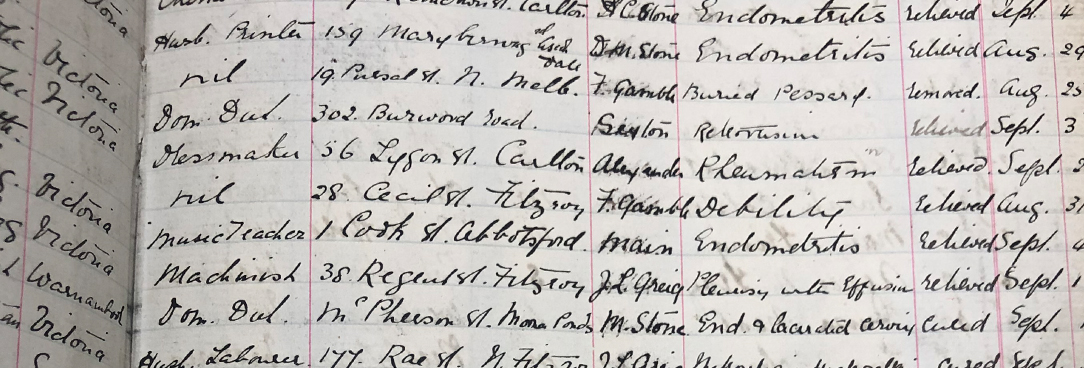 St. Carlton D. C. Stone Endometritis relieved Sept. 4
Victoria Husb. Printer 159 Marybyrnong Ascot Vale D. M. Stone Endometritis relieved Aug. 29
Victoria nil 19. St. N. Melb. F. Gamble Buried Pessary. removed. Aug. 25
Dom. Dut. 302. Burwood road. Sexton Retroversion relieved Sept. 3
Victoria Dressmaker 56 Lygon St. Carlton Alexander Rheumatism relieved. Sept.
Victoria nil 28. Cecil St. Fitzroy F. Gamble Debility relieved Aug. 31
Warnambool Music Teacher 1 Cook St. Abbotsford. Main Endometritis relieved Sept.
Victoria Machinist 38. Regent St. Fitzroy J. L. Greig Pleurisy with Effusion relieved Sept. 1
Dom. Dut. McPherson St. Moonee Ponds M. Stone End. & lacerated cervix cured Sept.
Husb. Labourer 177. Rae St. N. Fitzroy J. L. Greig cured Sept.